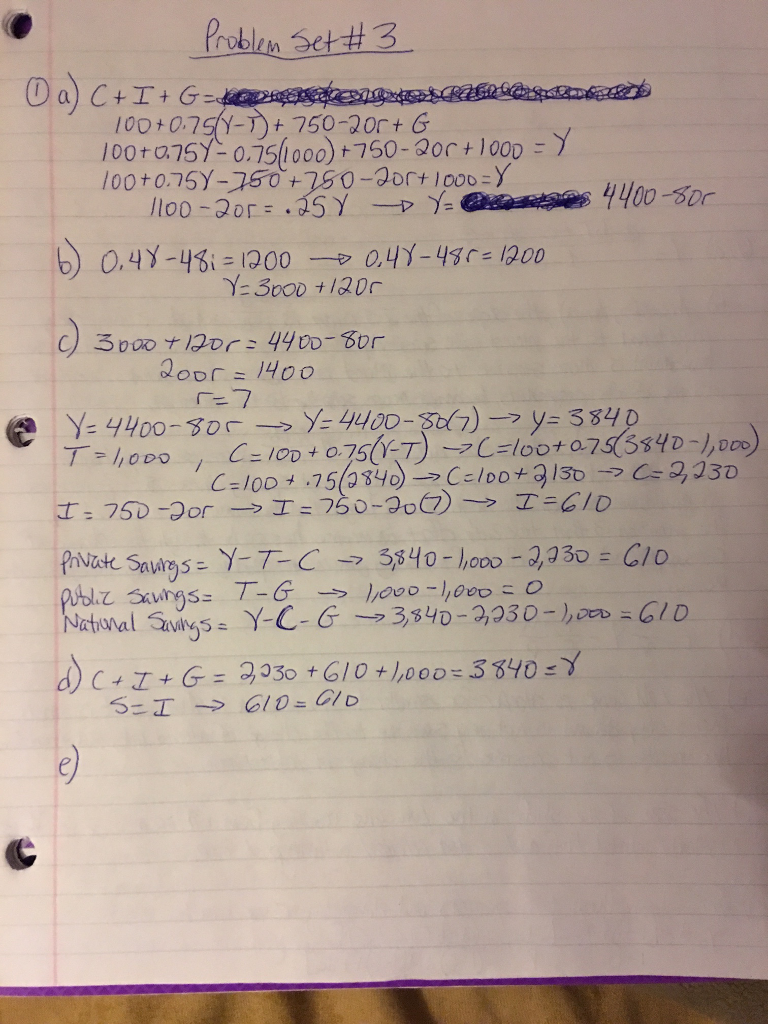 Problem Set # 3
① a) C + I + G =
100+0.75(Y-T) + 750-20r + G
100+0.75Y-0.75(1000)+750-20r+1000 = Y
100+0.75Y-750+750-20r+1000=Y
1100-20r = .25Y → Y= 4400-80r
b) 0.4Y-48i=1200 → 0.4Y-48r=1200
Y=3000+120r
c) 3000+120r = 4400-80r
200r = 1400
r=7
Y=4400-80r → Y=4400-80(7) → y=3840
T=1,000 , C=100+0.75(Y-T) → C=100+0.75(3840-1,000)
C=100+.75(2840) → C=100+2,130 → C=2,230
I=750-20r → I=750-20(7) → I=610
Private Savings= Y-T-C → 3,840-1,000-2,230 = 610
public savings= T-G → 1,000-1,000=0
National Savings= Y-C-G → 3,840-2,230-1,000=610
d) C+I+G = 2,230+610+1,000=3840=Y
S=I → 610=610
e)